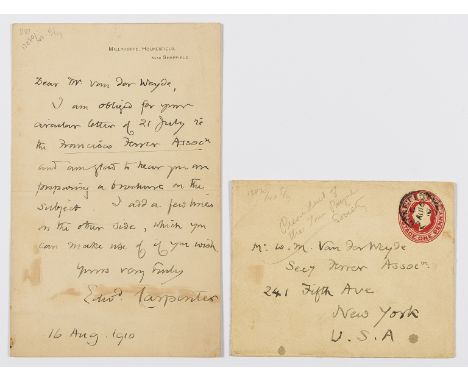 Millthorpe, Holmesfield,
near Sheffield
Dear Mr Van der Weyde,
I am obliged for your
circular letter of 21 July re
the Francisco Ferrer Associn
and am glad to hear you are
preparing a brochure on the
subject. I add a few lines
on the other side, which you
can make use of if you wish
Yours very truly
Edwd Carpenter
16 Aug. 1910
President of
the Tom Paine
Society
Mr W. M. Van der Weyde
Secy Ferrer Associn
241 Fifth Ave
New York
U.S.A